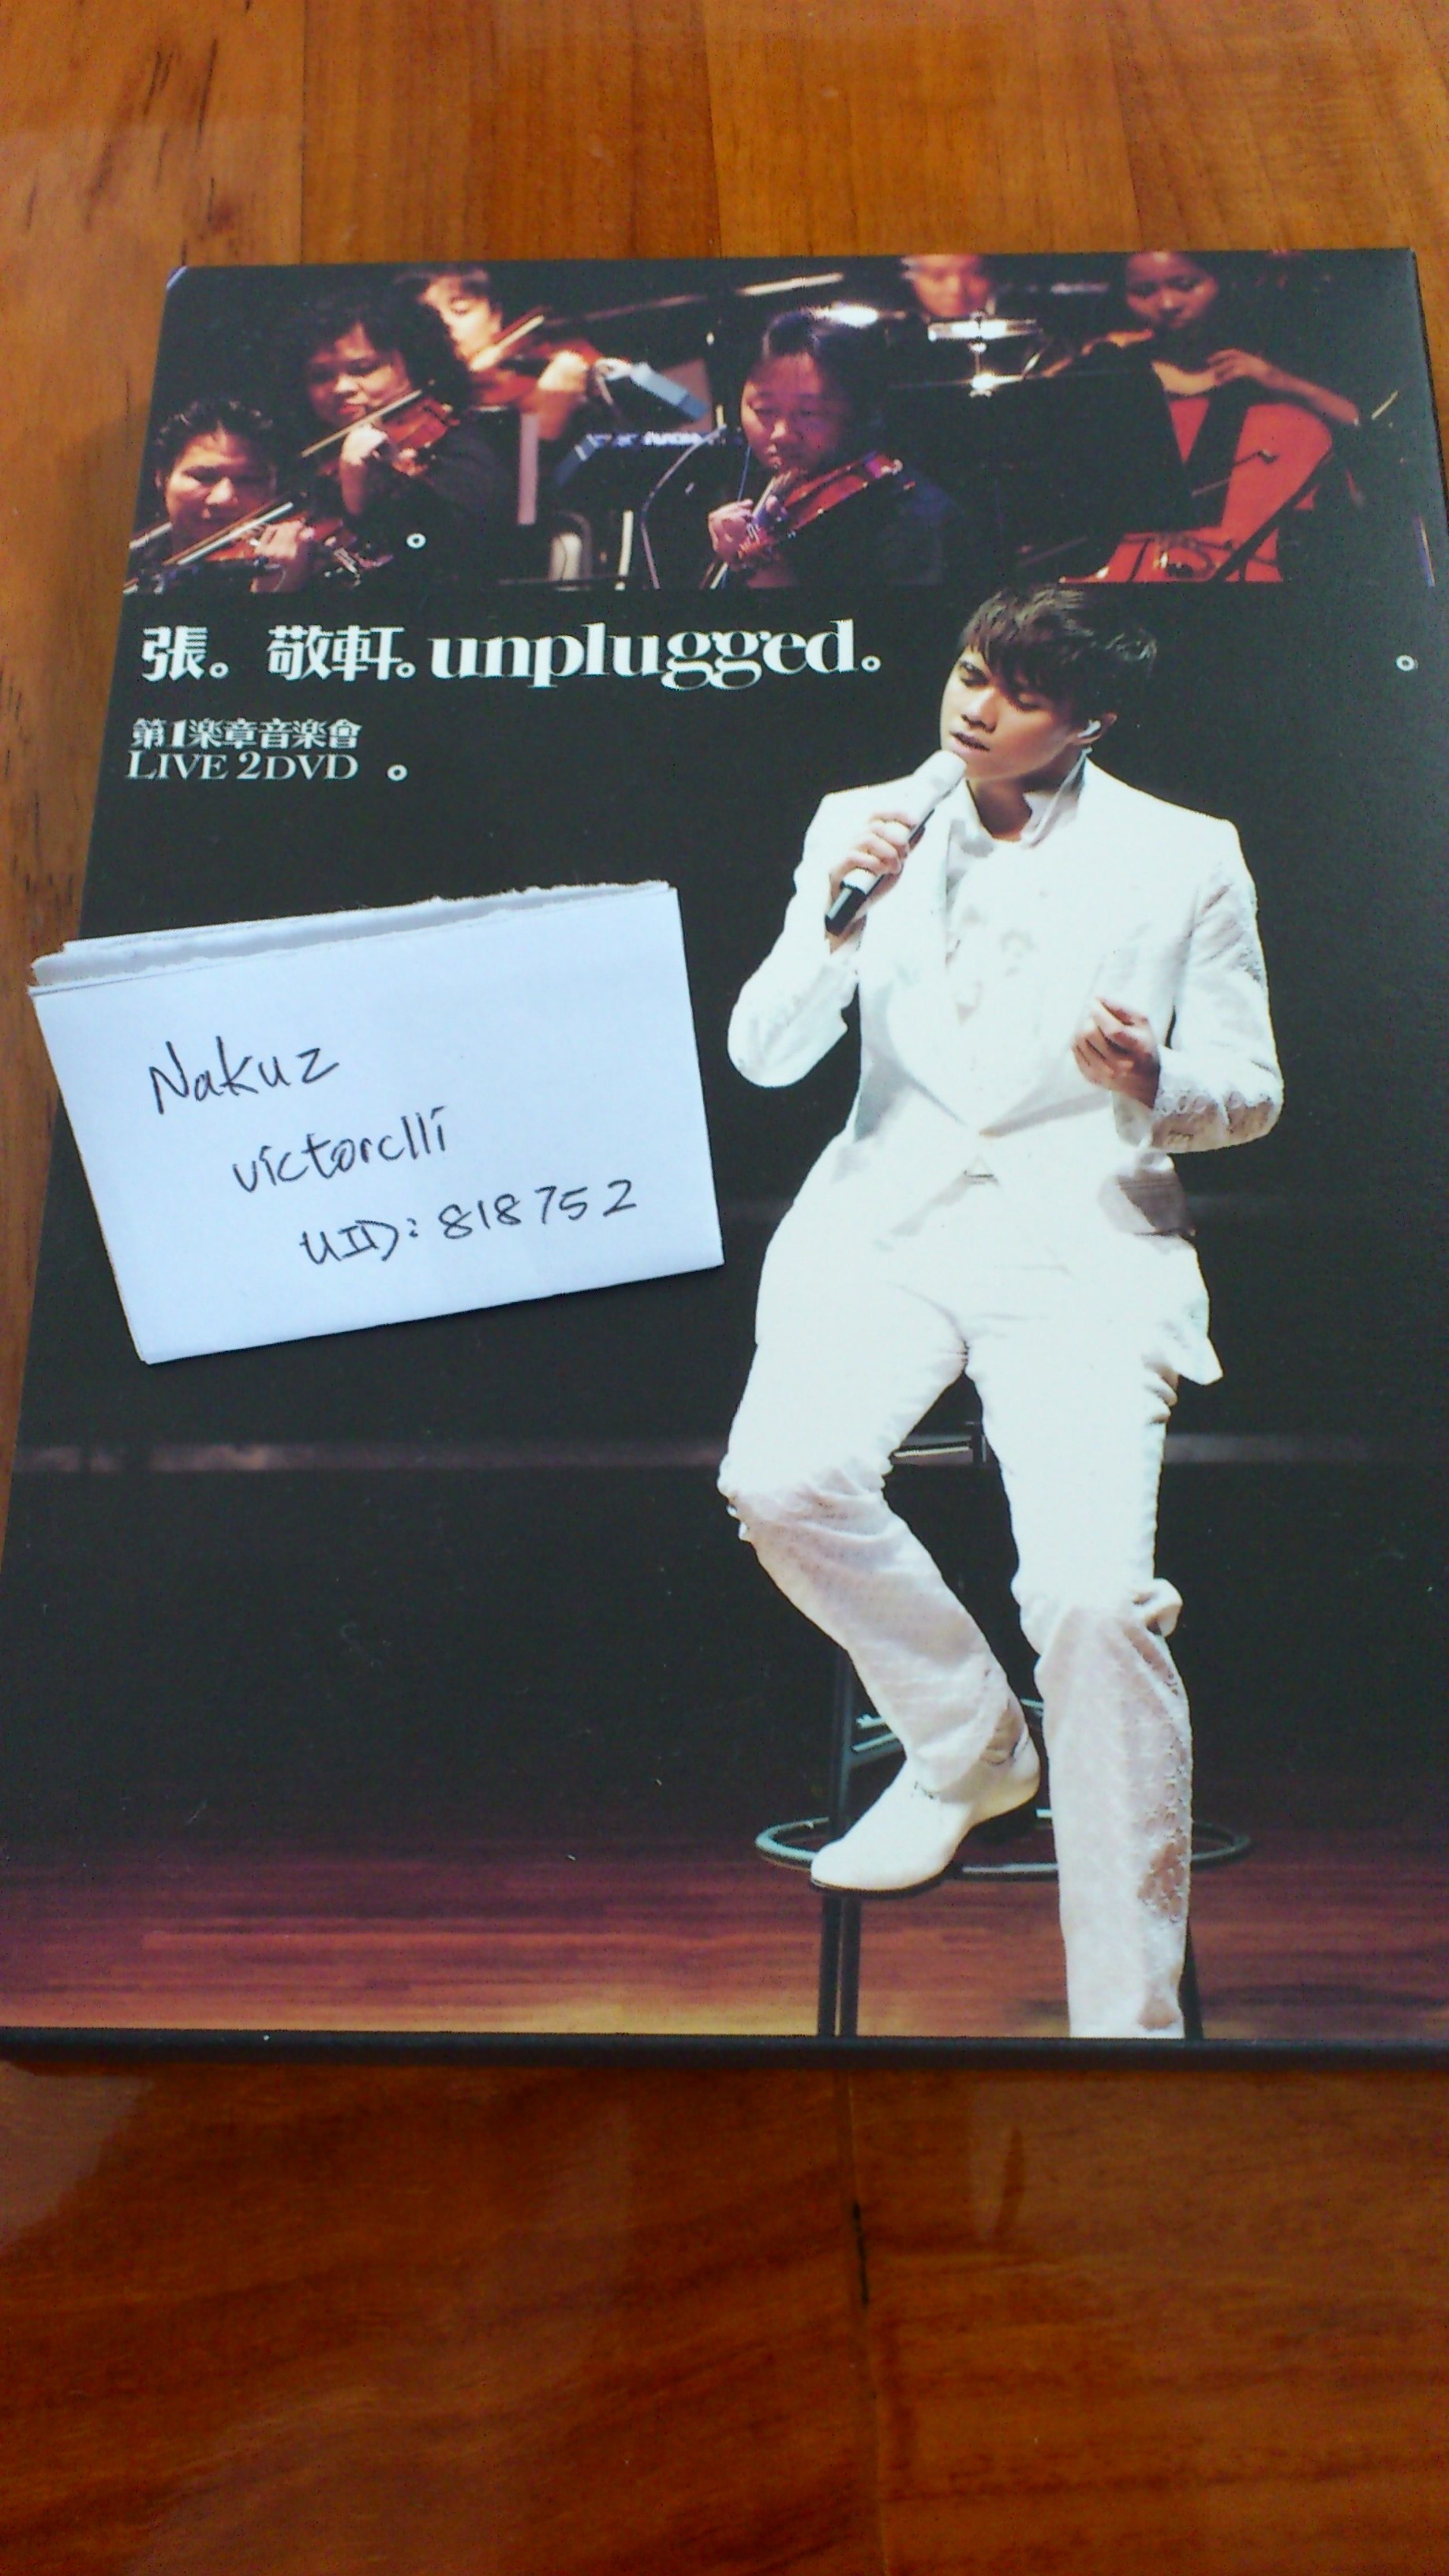 張。敬軒。unplugged。
第1楽章音楽會
LIVE 2DVD
Nakuz
victorclli
UID: 818752